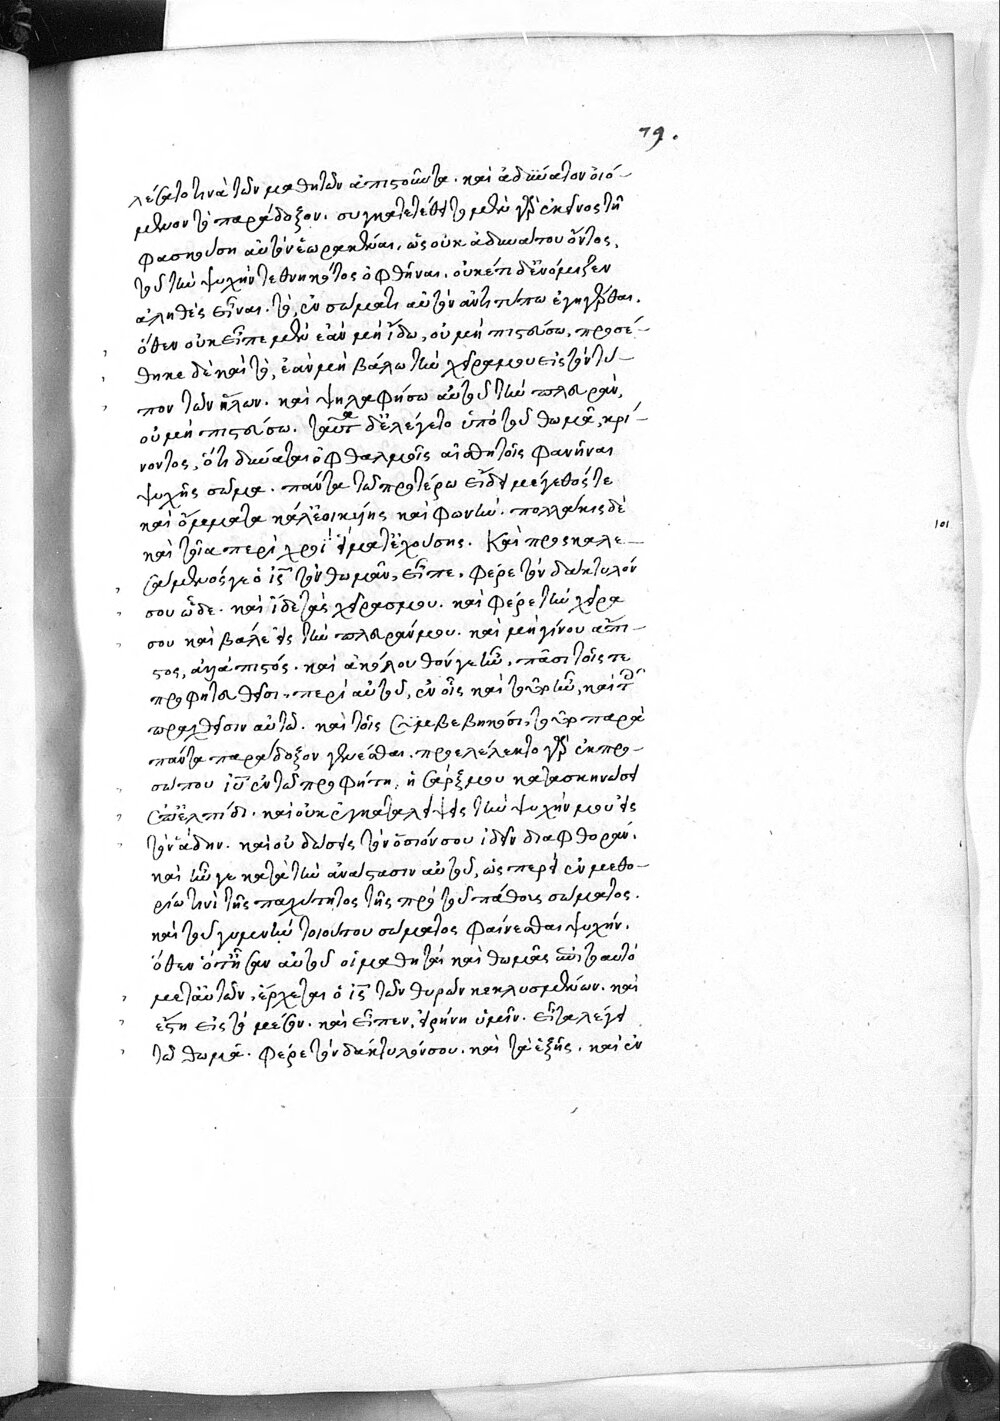 79.
λέξατό τινα τῶν μαθητῶν ἀπιστοῦντα. καὶ ἀδύνατον οἰό-
μενον τὸ παράδοξον. συγκατετέθειτο μὲν γὰρ ἐκεῖνος τῇ
φασκούσῃ αὐτὸν ἑωρακέναι, ὡς οὐκ ἀδυνάτου ὄντος,
τοῦ τὴν ψυχὴν τεθνηκότος ὀφθῆναι. οὐκέτι δ' ἐνόμιζεν
ἀληθὲς εἶναι. τὸ, ἐν σώματι αὐτὸν ἀντιτύπω ἐγηγέρθαι.
ὅθεν οὐκ εἶπε μὲν ἐὰν μὴ ἴδω, οὐ μὴ πιστεύσω, προσέ-
θηκε δὲ καὶ τὸ, ἐὰν μὴ βάλω τὴν χεῖρά μου εἰς τὸν τύ-
πον τῶν ἥλων. καὶ ψηλαφήσω αὐτοῦ τὴν πλευρὰν,
οὐ μὴ πιστεύσω. ταῦτα δ' ἐλέγετο ὑπὸ τοῦ θωμᾶ, κρί-
νοντος, ὅτι δύναται ὀφθαλμοῖς αἰσθητοῖς φανῆναι
ψυχῆς σῶμα. πάντα τῶ προτέρω εἴδει μέγεθός τε
καὶ ὄμματα κάλ' ἐοικυίης καὶ φωνήν. πολλάκις δὲ
καὶ τοῖα περὶ χροῒ εἵματ' ἐχούσης. Καὶ προσκαλε-
σάμενός γε ὁ ι̅ς̅ τὸν θωμᾶν, εἶπε, φέρε τὸν δάκτυλόν
σου ὧδε. καὶ ἴδε τὰς χεῖράς μου. καὶ φέρε τὴν χεῖρά
σου καὶ βάλε εἰς τὴν πλευράν μου. καὶ μὴ γίνου ἄπι-
στος, ἀλλὰ πιστός. καὶ ἀκόλουθόν γε ἦν, πᾶσι τοῖς τε
προφητευθεῖσι περὶ αὐτοῦ, ἐν οἷς καὶ τοῦτ' ἦν, καὶ τοῖς
πραχθεῖσιν αὐτῶ. καὶ τοῖς συμβεβηκόσι, τοῦτο παρὰ
πάντα παράδοξον γενέσθαι. προελέλεκτο γὰρ ἐκ προ-
σώπου ι̅υ̅ ἐν τῶ προφήτη, ἡ σάρξ μου κατασκηνώσει
ἐπ' ἐλπίδι. καὶ οὐκ ἐγκαταλείψεις τὴν ψυχήν μου εἰς
τὸν ἅδην. καὶ οὐ δώσεις τὸν ὅσιόν σου ἰδεῖν διαφθοράν.
καὶ ἦν γε κατὰ τὴν ἀνάστασιν αὐτοῦ, ὡσπερεὶ ἐν μεθο-
ρίω τινὶ τῆς παχύτητος τῆς πρὸ τοῦ πάθους σώματος.
καὶ τοῦ γυμνὴν τοιούτου σώματος φαίνεσθαι ψυχήν.
ὅθεν ὅτ' ἦσαν αὐτοῦ οἱ μαθηταὶ καὶ θωμᾶς ἐπὶ τ' αυτό
μετ' αὐτῶν, ἔρχεται ὁ ι̅ς̅ τῶν θυρῶν κεκλεισμένων. καὶ
ἔστη εἰς τὸ μέσον. καὶ εἶπεν, εἰρήνη ὑμῖν. εἶτα λέγει
τῶ θωμᾶ. φέρε τὸν δάκτυλόν σου. καὶ τὰ ἑξῆς. καὶ ἐν
101